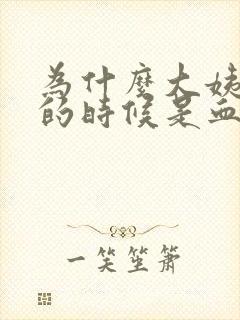 為什麼大姨
的時候是血
一笑坐簫